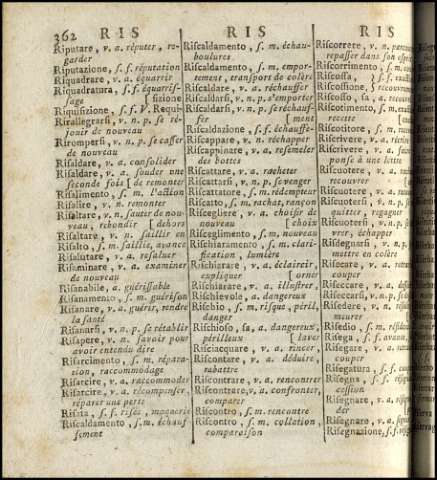 362 RIS
Riputare, v. a. réputer, re-
garder
Riputazione, s. f. réputation
Riquadrare, v. a. équarrir
Riquadratura, s. f. équarris-
sage [ sizione
Riquisizione, s. f. V. Requi-
Rirallegrarsi, v. n. p. se ré-
jouir de nouveau
Rirompersi, v. n. p. se casser
de nouveau
Risaldare, v. a. consolider
Risaldare, v. a. souder une
seconde fois [ de remonter
Risalimento, s. m. l'action
Risalire, v. n. remonter
Risaltare, v. n. sauter de nou-
veau, rebondir [ dehors
Risaltare, v. n. saillir en
Risalto, s. m. saillie, avance
Risalutare, v. a. resaluer
Risaminare, v. a. examiner
de nouveau
Risanabile, a. guérissable
Risanamento, s. m. guérison
Risanare, v. a. guérir, rendre
la santé
Risanarsi, v. n. p. se rétablir
Risapere, v. n. savoir pour
avoir entendu dire
Risarcimento, s. m. répara-
tion, raccommodage
Risarcire, v. a. raccommoder
Risarcire, v. a. récompenser,
réparer une perte
Risata, s. f. risée, moquerie
Riscaldamento, s. m. échauf
fement
RIS
Riscaldamento, s. m. échau-
boulures.
Riscaldamento, s. m. empor-
tement, transport de colère
Riscaldare, v. a. réchauffer
Riscaldarsi, v. n. p. s'emporter
Riscaldarsi, v. n. p. s'échauf-
fer [ ment
Riscaldazione, s. f. échauffe-
Riscappare, v. n. réchapper
Riscappinare, v. a. resemeler
des bottes
Riscattare, v. a. racheter
Riscattarsi, v. n. p. se venger
Riscattatore, s. m. rédempteur
Riscatto, s. m. rachat, rançon
Riscegliere, v. a. choisir de
nouveau [ choix
Risceglimento, s. m. nouveau
Rischiaramento, s. m. clari-
fication, lumière
Rischiarare, v. a. éclaircir,
expliquer [ orner
Rischiarare, v. a. illustrer,
Rischievole, a. dangereux
Rischio, s. m. risque, péril,
danger
Rischioso, sa, a. dangereux,
périlleux [ laver
Risciacquare, v. a. rincer,
Riscontare, v. a. déduire,
rabattre
Riscontrare, v. a. rencontrer
Riscontrare, v. a. confronter,
comparer
Riscontro, s. m. rencontre
Riscontro, s. m. collation,
comparaison
RIS
Riscorrere, v. n.
repasser dans son
Riscorrimento, s. m.
Riscossa, s. f.
Riscossione, s. f. recouvrem
Riscosso, sa, a.
Riscotimento, s. m.
recette
Riscotitore, s. m.
Riscrivere, v. a.
Riscrivere, v. a.
ponse à une lettre
Riscuotere, v. a.
recouvrer
Riscuotere, v. a.
Riscuotersi, v. n. p.
quitter, regagner
Riscuotersi, v. n. p. se
vrer, échapper
Risdegnarsi, v. n. p. se
mettre en colère
Risecare, v. a.
couper
Riseccare, v. a.
Riseccarsi, v. n. p.
Risedere, v. n.
meurer
Risedio, s. m.
Risega, s. f.
Risegare, v. a.
couper
Risegatura, s. f.
Risegna, s. f.
cession
Risegnare, v. a.
der
Risegnare, v. a.
Risegnazione, s. f.